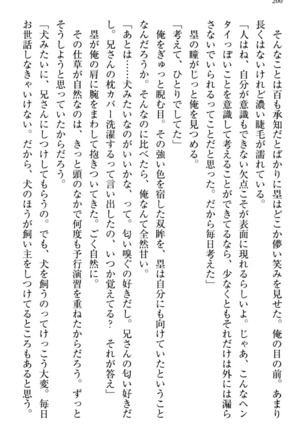 200
そんなことは百も承知だとばかりに塁はどこか儚い笑みを見せた。俺の目の前、あまり
長くはないけれど濃い睫毛が濡れている。
「人はね、自分が意識もできない欠点こそが表面に現れるらしいよ。じゃあ、こんなヘン
タイっぽいことを意識して考えることができてるなら、少なくともそれだけは外には漏ら
さないでいられるってことだと思った。だから毎日考えた」
塁の瞳がじっと俺を見つめる。
「考えて、ひとりでしてた」
俺をぎゅっと睨む目。その強い色を宿した双眸を、塁は自分にも向けていたということ
なんだろうか。そんなのに比べたら、俺なんて全然甘い。
「あとは……犬みたいなのがいいかな、って。匂い嗅ぐの好きだし。兄さんの匂い好きだ
し。兄さんの枕カバー洗濯するって言い出したの、いつか覚えてる？　それが答え」
塁が俺の肩に腕をまわして抱きついてきた。ごく自然に。
その仕草が自然なのは、きっと頭のなかで何度も予行演習を重ねたからだろう。ずっと
そうしようと思っていたからだろう。
「犬みたいに、兄さんにしつけてもらうの。でも、犬を飼うのってけっこう大変。毎日
お世話しなきゃいけない。だから、犬のほうが飼い主をしつけてるところもあると思う。